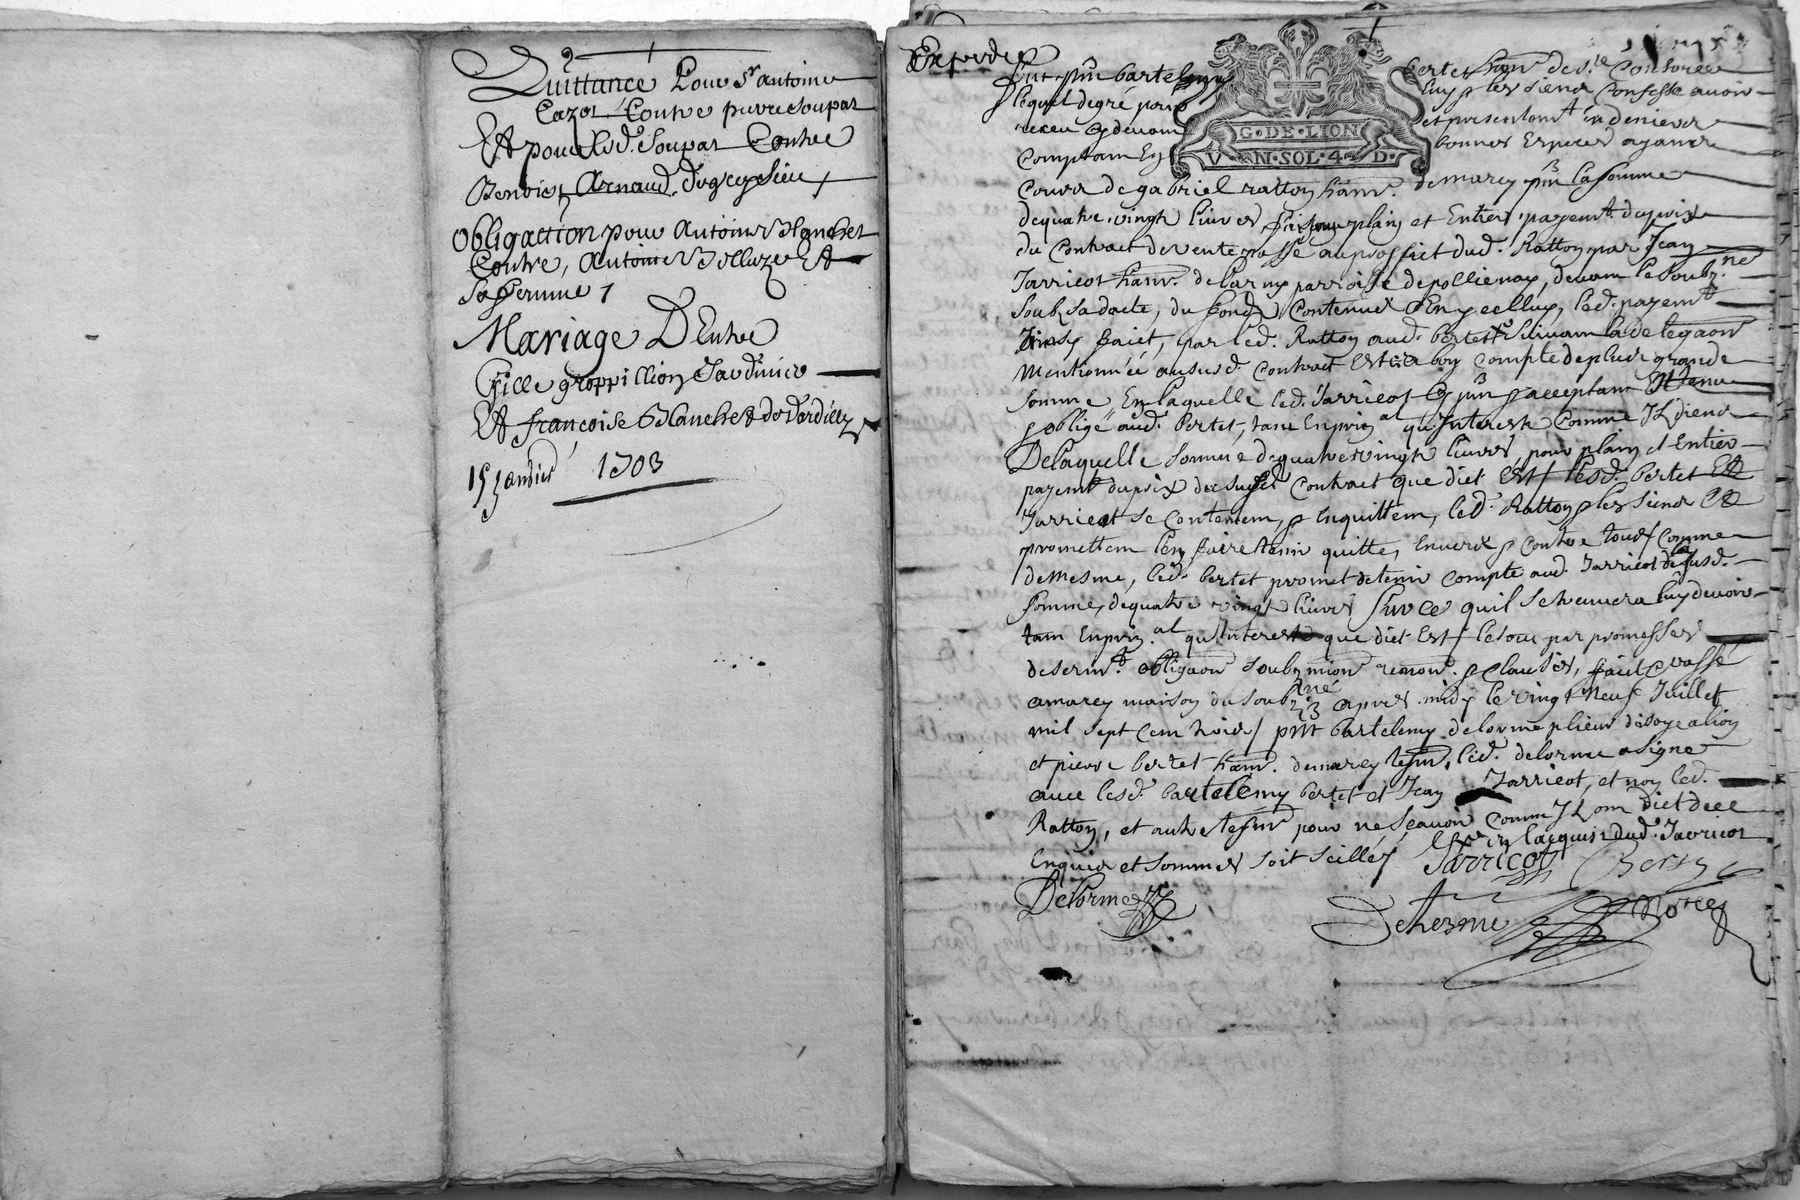 Quittance Pour Sr antoine
Cazot Contre pierre soupat
Et pour led. Soupat Contre
Benoist Arnaud
Obligation pour Antoine blanchet
Contre, Antoine Et
Sa femme
Mariage D'Entre
Gille groppillion Jardinier
Et francoise blanchet de dardilly
15 Janvier 1703
Expediée
fut pnt bartelemy bertet hant de Consorce
lequel de gré pour luy p les siens Confesse avoir
receu cy devant et presentemt in deniers
Comptant En bonnes Especes ayant
Cours de gabriel ratton hant. de marcy pnt la somme
de quatre vingt livres plain et Entier payemt. du prix
du Contract de vente passé au proffict dud. Ratton par Jean
Jarricot hant. de parroisse de pollienay, devant le soubz.né
soubz sa datte, du fondz Contenus En jcelluy, led. payemt
Ainsy faict, par led. Ratton aud. bertet Suivant la delegaon
mentionnée au susd. Contract Est a bon compte de plus grande
somme En laquelle led. Jarricot Cy pnt p acceptant Est tenu
p obligé aud. bertet, tant En prin.al qu'Interests Comme Ilz disent
De laquelle somme de quatre vingt livres, pour plain et Entier
payemt du prix du susd. Contract que dict Est / lesd. bertet Et
Jarricot se Contentent, p En quittent, led. Ratton p les siens Et
promettent l'en faire tenir quitte, Envers p Contre tous / Comme
de mesme, led. bertet promet de tenir compte aud. Jarricot de la susd.
somme de quatre vingt livres sur ce qu'il se trouvera luy devoir
tant En prin.al qu'Interests que dict Est / le tout par promesses
de sermt. obligaon soubzmion renon. p clauses, faict p passé
a marcy maison du soubz.né apres midy le vingt neuf Juillet
mil sept Cent trois / pnt bartelemy delorme plieur de soye a lion
et pierre bertet hant. de marcy tesm. led. delorme a signé
avec lesd. bartelemy bertet et Jean Jarricot, et non led.
Ratton, et autre tesm pour ne sçavoir Comm Ilz ont dict de ce
Enquis et sommes soit scellé / dud. Jarricot
Jarricot
Delorme
Dehesme
G·DE·LION
V N·SOL·4 D·